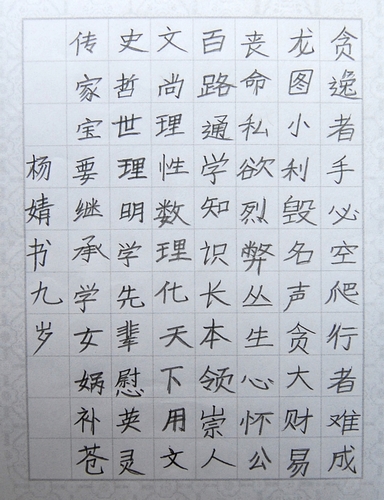 贪逸者手必空爬行者难成
龙图小利毁名声贪大财易
丧命私欲烈弊丛生心怀公
百路通学知识长本领崇人
文尚理性数理化天下用文
史哲世理明学先辈慰英灵
传家宝要继承学女娲补苍
杨婧书九岁